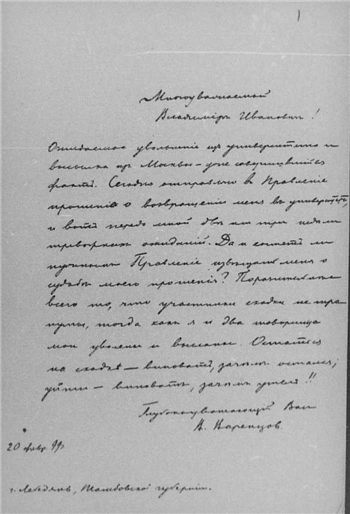 Многоуважаемый
Владиміръ Ивановичъ!
Ожидаемое увольненіе изъ университета и
высылка изъ Москвы – уже совершившійся
фактъ. Сегодня отправляю въ Правленіе
прошеніе о возвращеніи меня въ университетъ,
и вотъ передо мной двѣ или три недѣли
тревожныхъ ожиданій. Да и сочтетъ ли
нужнымъ Правленіе извѣщать меня о
судьбѣ моего прошенія? Поразительнѣе
всего то, что участники сходки не тро
нуты, тогда какъ я и два товарища
мои уволены и высланы. Остаться
на сходкѣ – виноватъ, зачѣмъ остался;
уйти – виноватъ, зачѣмъ ушелъ!!
Глубокоуважающій Васъ
В. Варенцов
20 февр. 99 г.
г. Лебедянь, Тамбовской губерніи.